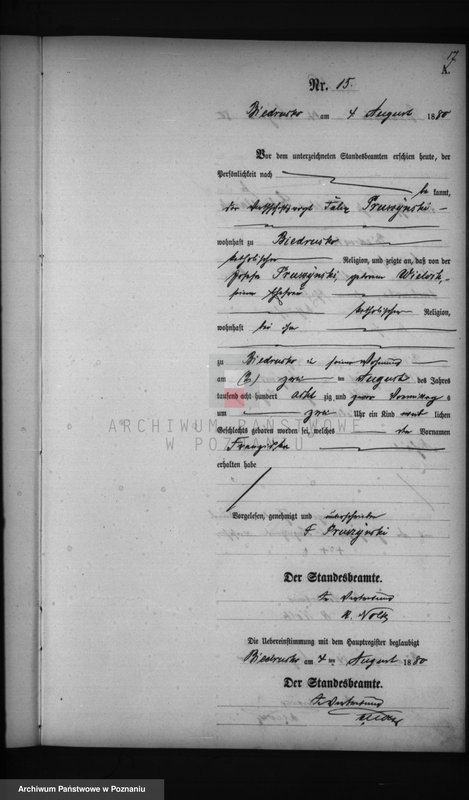 17
A.
Nr. 15.
Biedrusko am 4 August 1880
Vor dem unterzeichneten Standesbeamten erschien heute, der
Persönlichkeit nach
be kannt,
der Felix Pruszyński
wohnhaft zu Biedrusko
katholischer Religion, und zeigte an, daß von der
Josefa Pruszyńska, geborene
seiner Ehefrau
katholischer Religion,
wohnhaft bei ihm
zu Biedrusko in seiner Wohnung
am (2) zwei ten August des Jahres
tausend acht hundert acht zig und zwar Vormittag s
um zwei Uhr ein Kind weib lichen
Geschlechts geboren worden sei, welches die Vornamen
Franziska
erhalten habe
Vorgelesen, genehmigt und unterschrieben
F Pruszyński
Der Standesbeamte.
In Vertretung
Die Uebereinstimmung mit dem Hauptregister beglaubigt
Biedrusko am 4 ten August 1880
Der Standesbeamte.
In Vertretung
ARCHIWUM PAŃSTWOWE
W POZNANIU
Archiwum Państwowe w Poznaniu